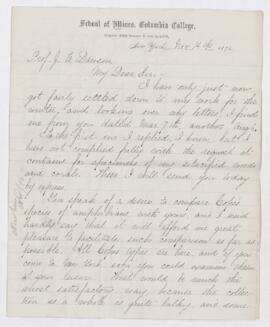 School of Mines, Columbia College,
New York Nov. 7th 1872
Prof. J. W. Dawson
My Dear Sir:
I have only just now
got fairly settled down to my work for the
winter, and looking over my letters I find
one from you dated Mar. 7th, another Aug
To the first one I replied, I know, but I
have not complied fully with the request it
contains for specimens of my silicified woods
and corals. These I will send you today
by express.
You speak of a desire to compare Cope's
species of amphibians with yours, and I need
hardly say that it will afford me great
pleasure to facilitate such comparison as far as
possible. All Cope's types are here, and if you
come to New York soon you could examine them
at your leisure. That would be much the
most satisfactory way, because the collec-
tion as a whole is quite bulky, and some